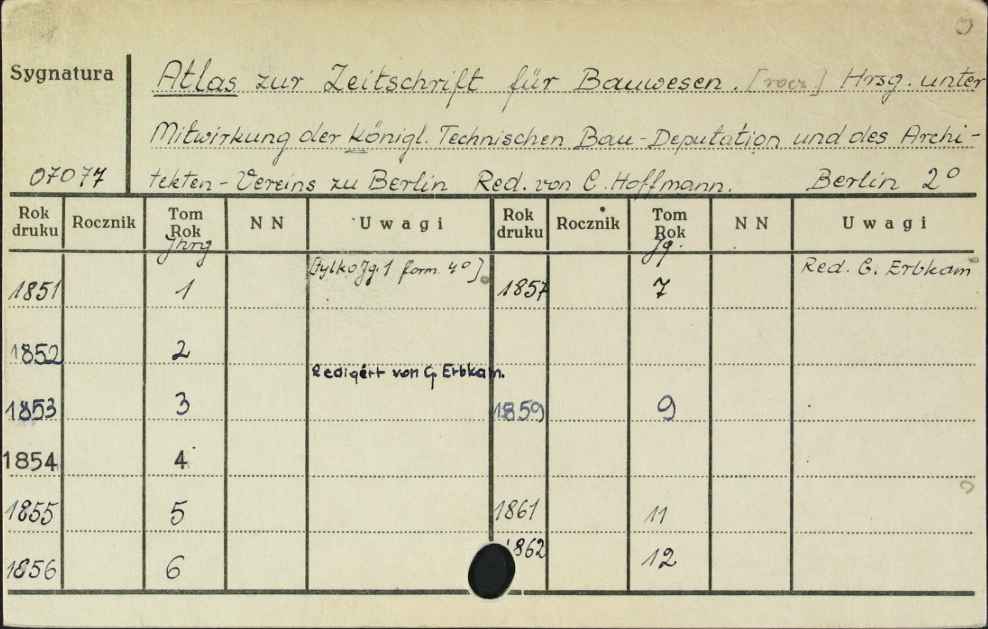 Sygnatura
Atlas zur Zeitschrift für Bauwesen. [rocz.] Hrsg. unter
Mitwirkung der Königl. Technischen Bau-Deputation und des Archi-
07077 tekten-Vereins zu Berlin Red. von C. Hoffmann. Berlin 2°
Rok druku Rocznik Tom Rok Jhrg NN Uwagi Rok druku Rocznik Tom Rok Jg. NN Uwagi
1851 1 [tylko Jg. 1 form. 4°] 1857 7 Red. G. Erbkam
1852 2
1853 3 Redigért von G. Erbkam. 1859 9
1854 4
1855 5 1861 11
1856 6 1862 12